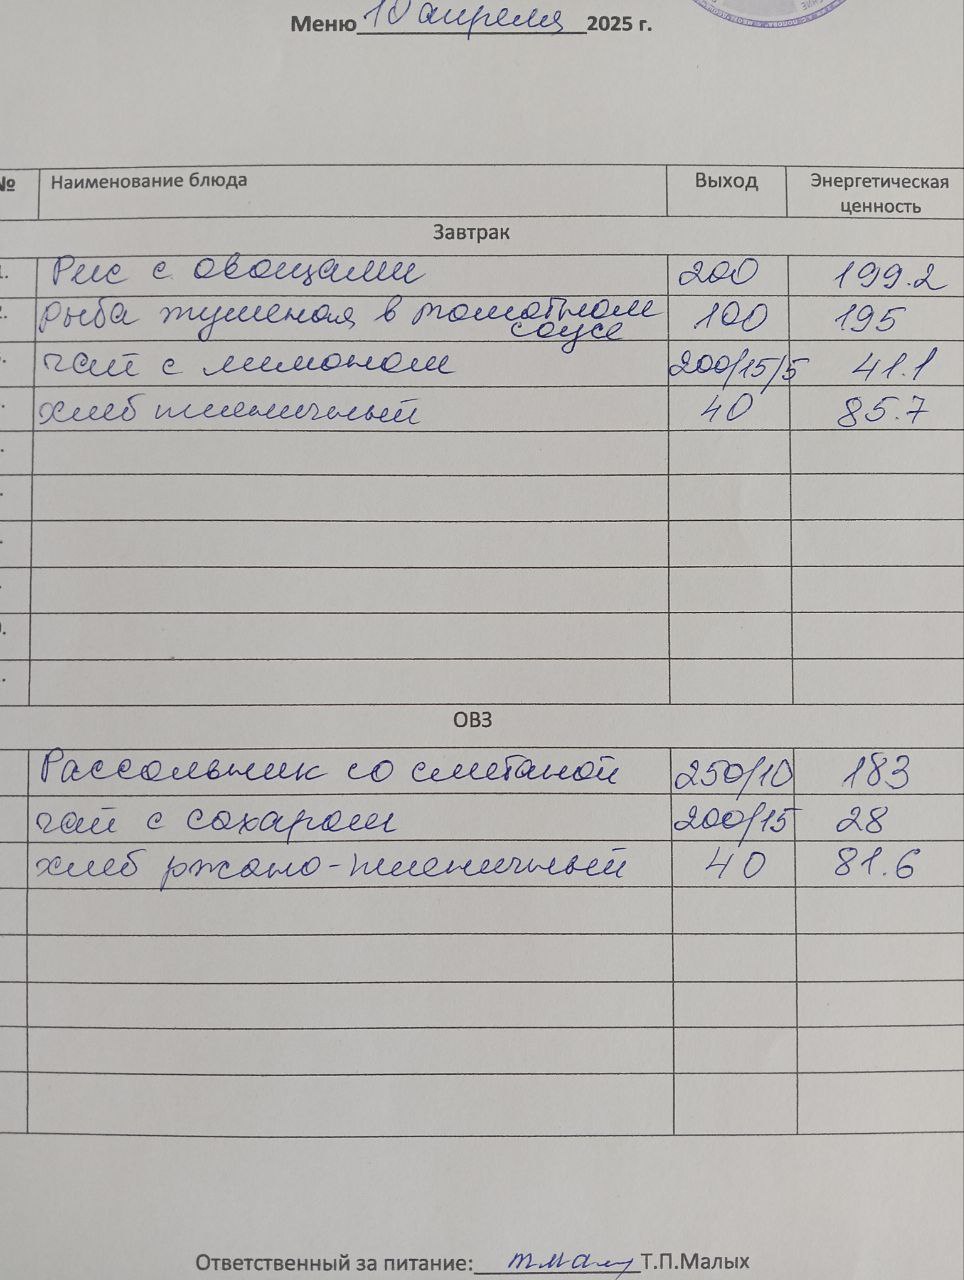 Меню 10 апреля 2025 г.
№ Наименование блюда Выход Энергетическая ценность
Завтрак
1. Рис с овощами 200 199.2
2. рыба тушеная в томатном соусе 100 195
чай с лимоном 200/15/5 41.1
хлеб пшеничный 40 85.7
ОВЗ
Рассольник со сметаной 250/10 183
чай с сахаром 200/15 28
хлеб ржано-пшеничный 40 81.6
Ответственный за питание: Т.П.Малых